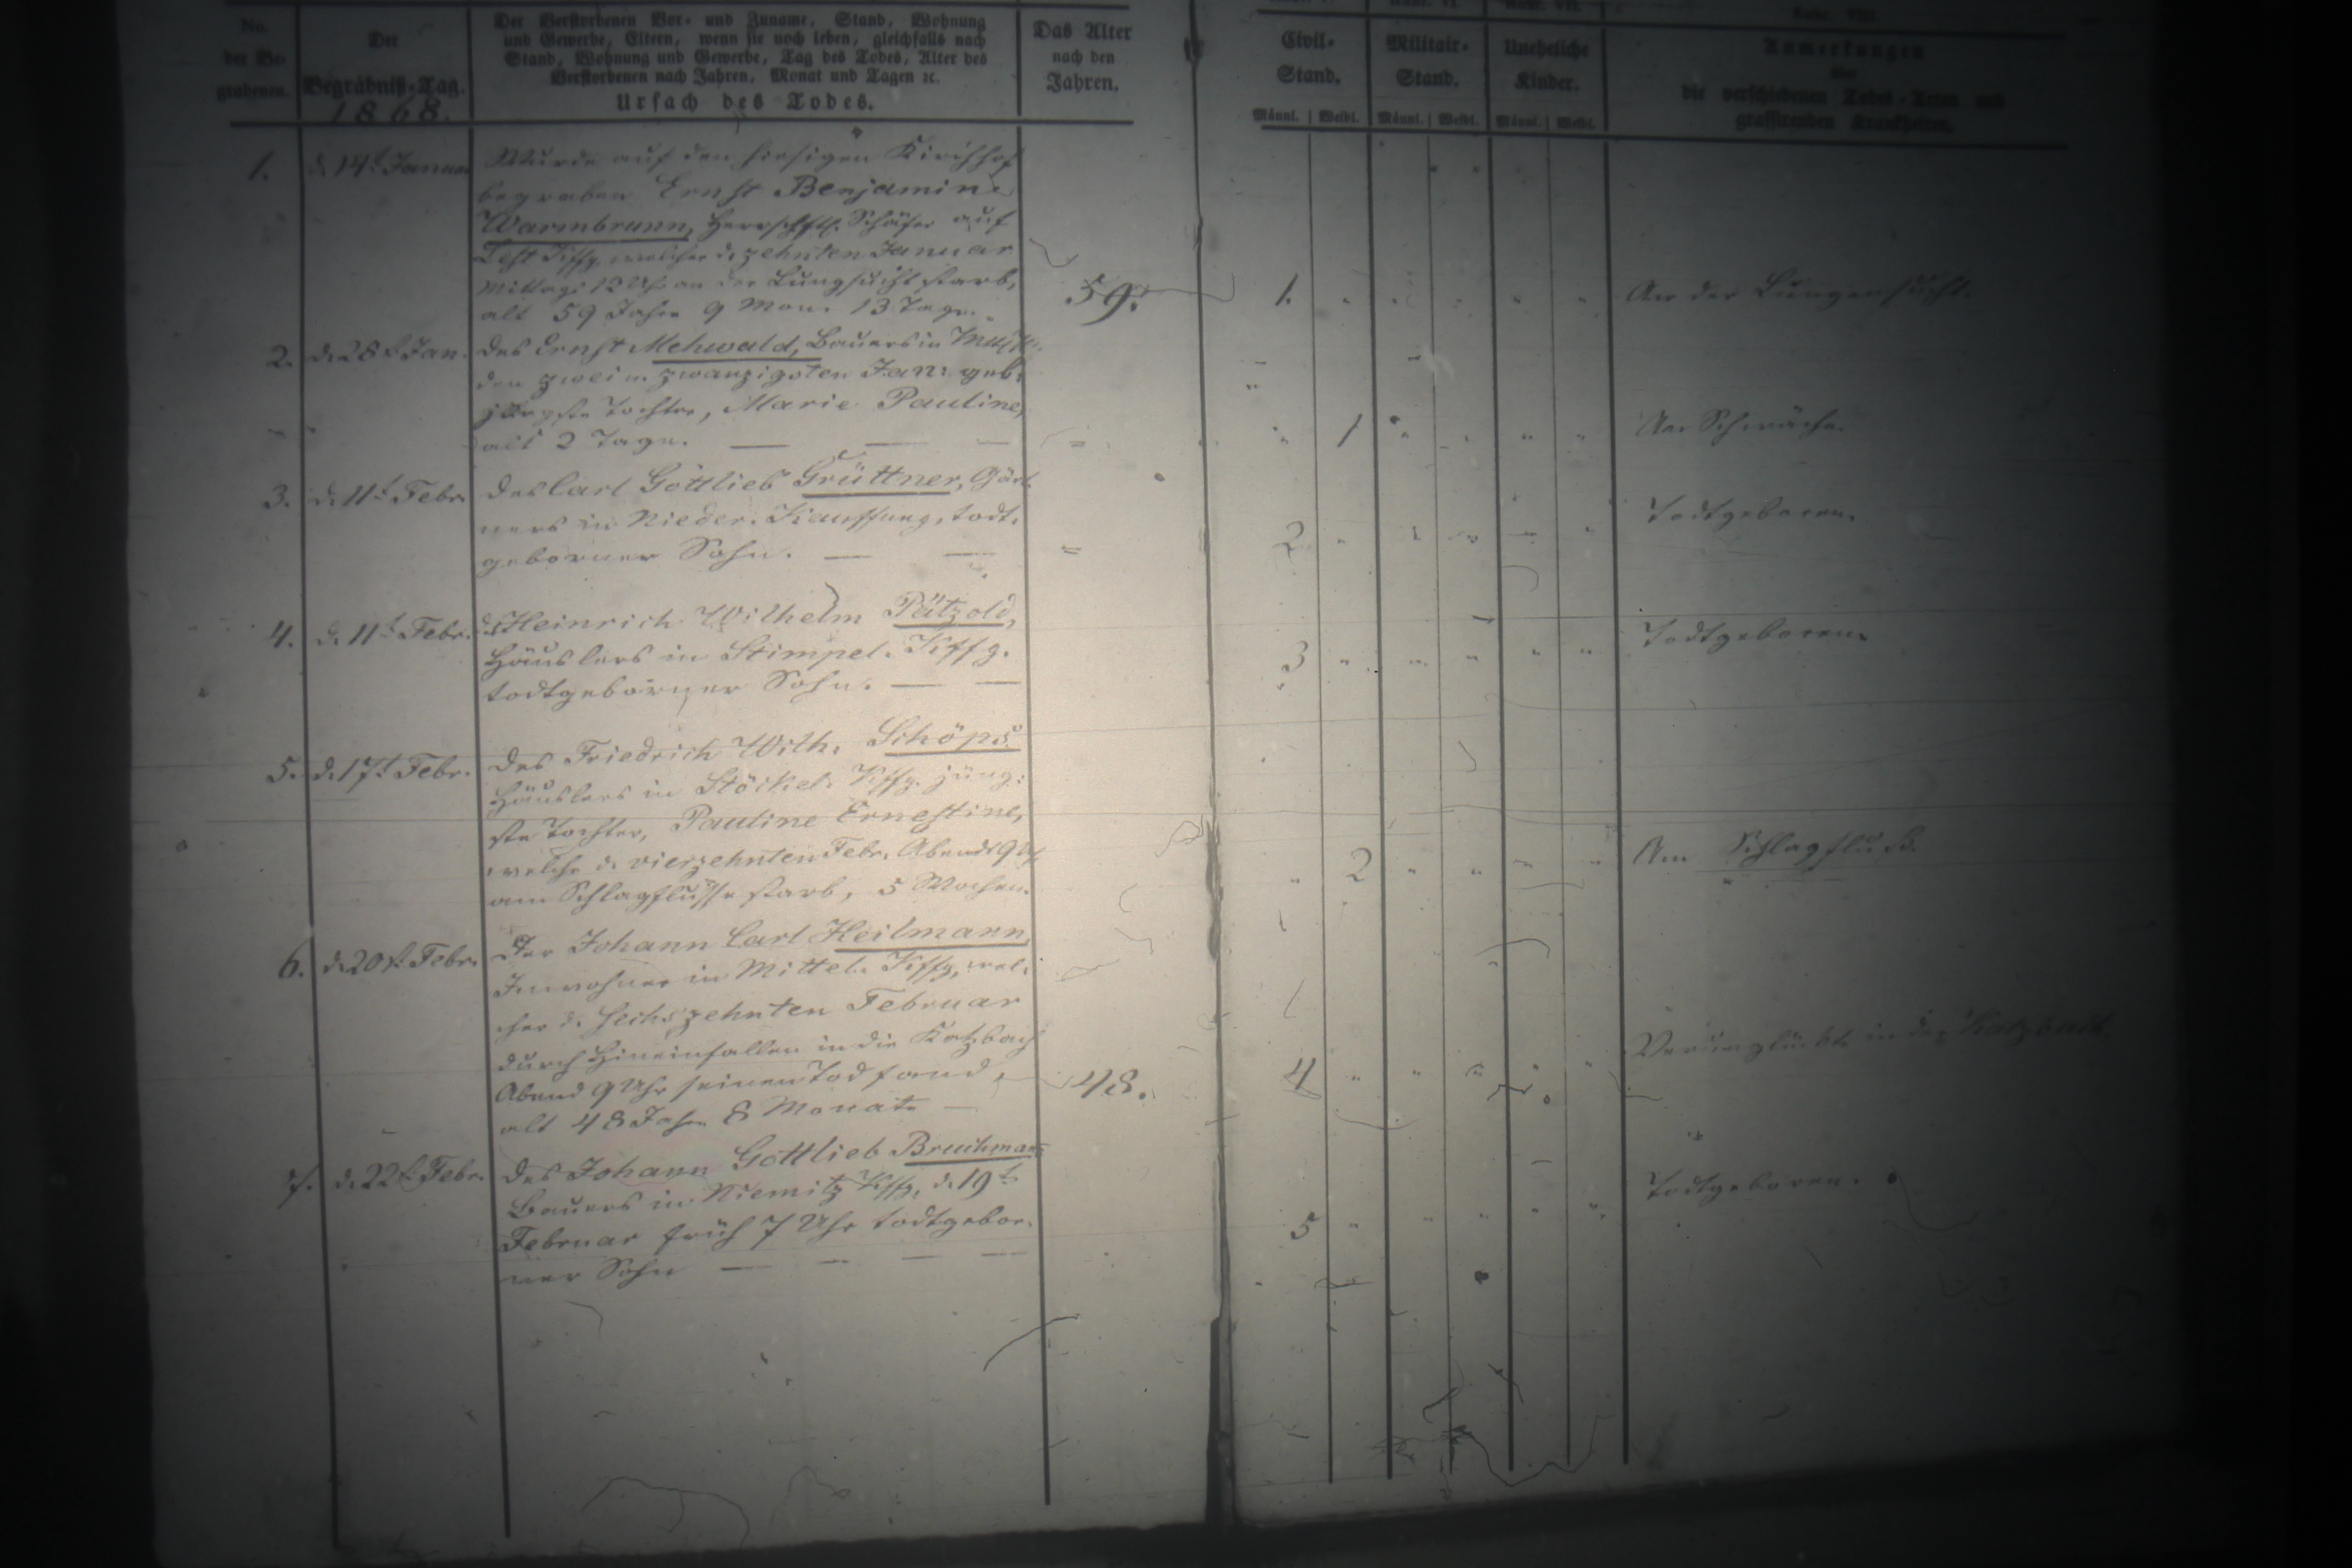 No.
der Be-
grabenen.
Der
Begräbniß-Tag.
1868.
Der Verstorbenen Vor- und Zuname, Stand, Wohnung
und Gewerbe, Eltern, wenn sie noch leben, gleichfalls nach
Stand, Wohnung und Gewerbe, Tag des Todes, Alter des
Verstorbenen nach Jahren, Monat und Tagen ꝛc.
Ursach des Todes.
Das Alter
nach den
Jahren.
Civil-
Stand.
Militair-
Stand.
Uneheliche
Kinder.
Männl. | Weibl. Männl. | Weibl. Männl. | Weibl.
Anmerkungen
über
die verschiedenen Todes-Arten und
grassirenden Krankheiten.
1. d. 14t Januar
Wurde auf den hiesigen Kirchhof
begraben Ernst Benjamin
Warmbrunn, Herrschftl. Schäfer auf
Kffg. welcher d. zehnten Januar
Mittags 12 Uhr an der Lungsucht starb,
alt 59 Jahre 9 Mon. 13 Tage.
59.
1.
An der Lungensucht.
2. d. 28t Jan.
des Ernst Mehwald, Bauers in
den zwei u. zwanzigsten Jan: geb.
jüngste Tochter, Marie Pauline,
alt 2 Tage.
1
An Schwäche.
3. d. 11t Febr.
des Carl Gottlieb Grüttner, Gärt-
ners in Nieder-Kauffung, todt-
geborner Sohn.
2
Todtgeboren.
4. d. 11t Febr.
des Heinrich Wilhelm Pätzold,
Häuslers in Stimpel-Kffg.
todtgeborner Sohn.
3
Todtgeboren.
5. d. 17t Febr.
des Friedrich Wilh. Schöps
Häuslers in Stöckel-Kffg. jüng-
ste Tochter, Pauline Ernestine,
welche d. vierzehnten Febr. Abends 9 Uhr
am Schlagflusse starb, 5 Wochen.
2
Am Schlagfluß.
6. d. 20t Febr.
Der Johann Carl Heilmann,
Inwohner in Mittel-Kffg, wel-
cher d. sechszehnten Februar
durch Hineinfallen in die Katzbach
Abend 9 Uhr seinen Tod fand,
alt 48 Jahr 8 Monate
48.
4
Verunglückte in der Katzbach
7. d. 22t Febr.
des Johann Gottlieb Bruchmann
Bauers in Niemitz Kffg, d. 19t
Februar früh 7 Uhr todtgebor-
ner Sohn
5
Todtgeboren.